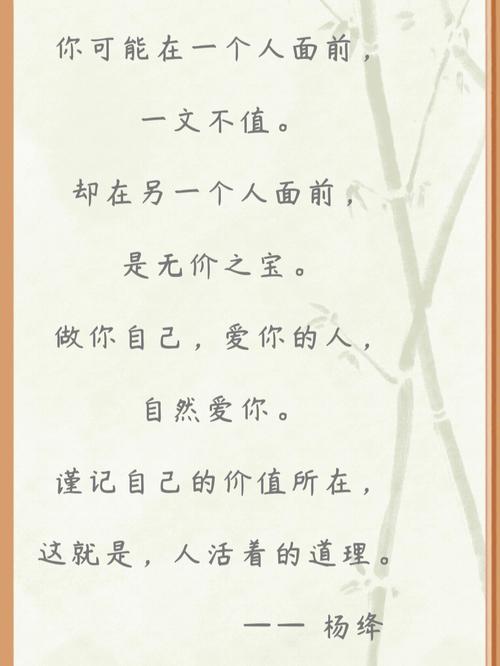 你可能在一个人面前，
一文不值。
却在另一个人面前，
是无价之宝。
做你自己，爱你的人，
自然爱你。
谨记自己的价值所在，
这就是，人活着的道理。
—— 杨绛